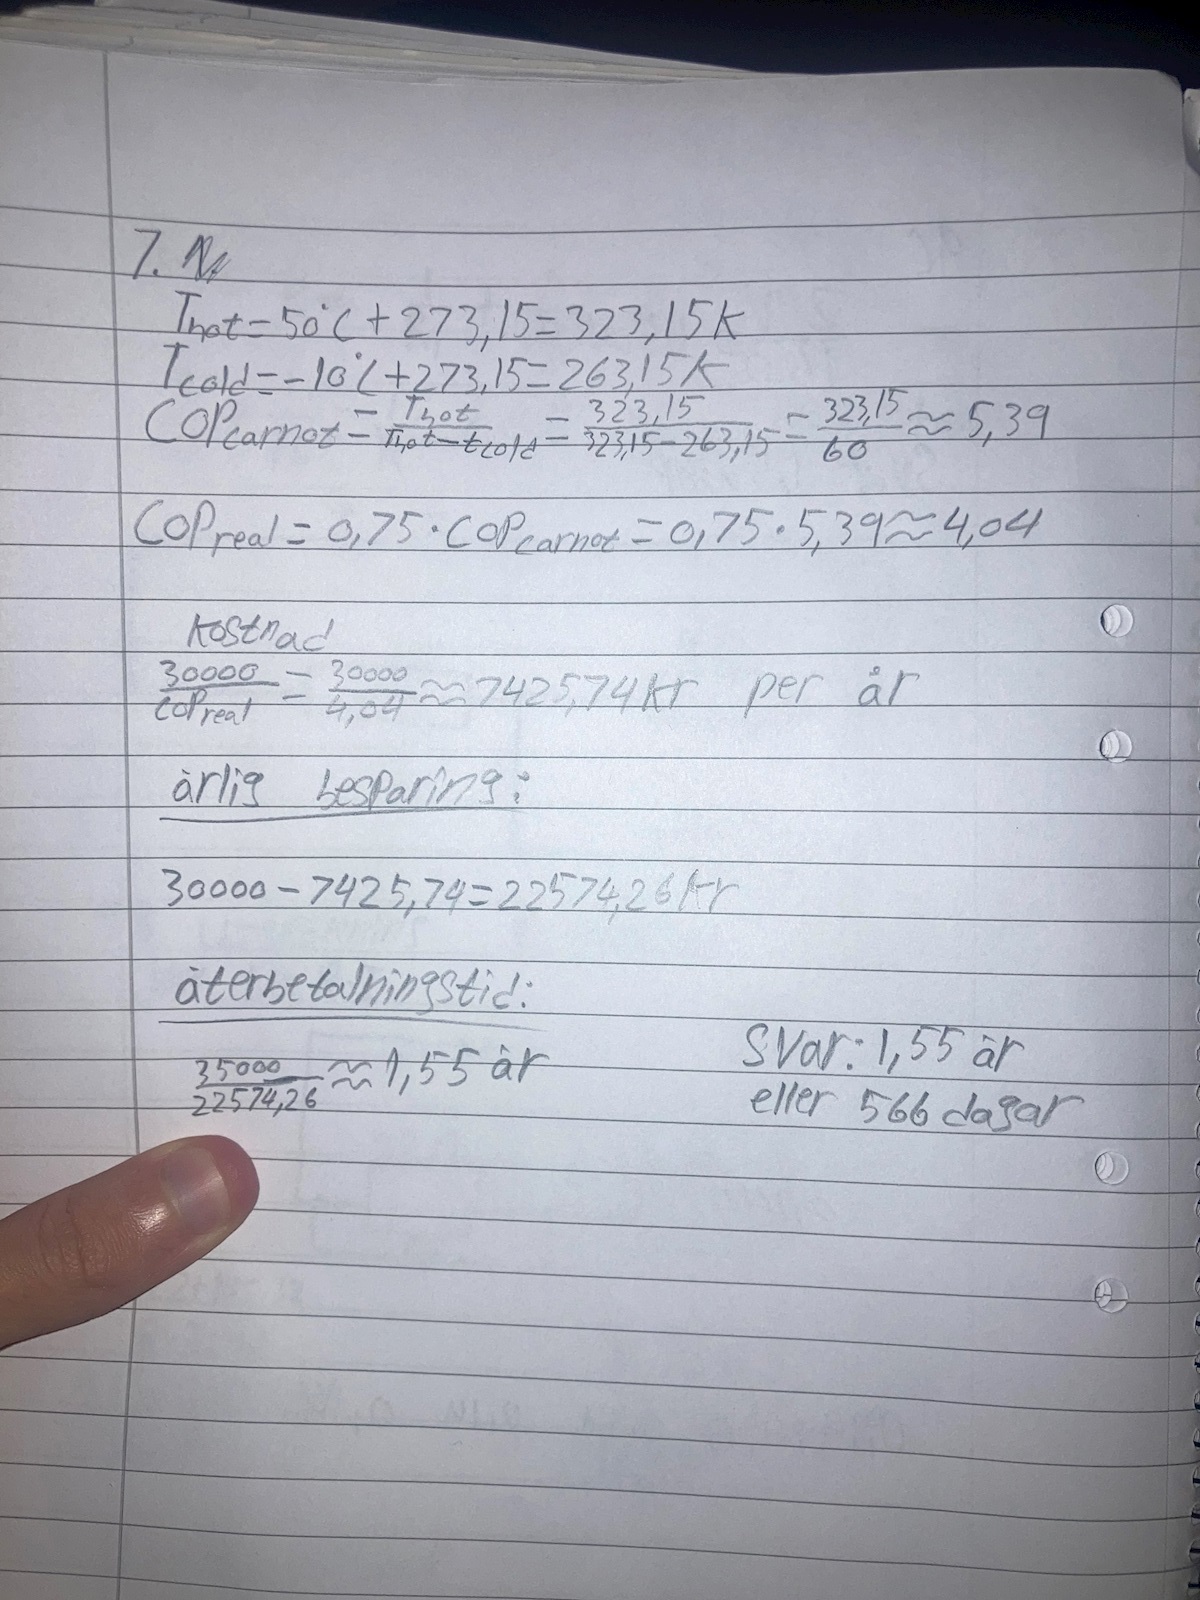 7.
Thot = 50°C + 273,15 = 323,15K
Tcold = -10°C + 273,15 = 263,15K
COPcarnot = Thot / Thot - tcold = 323,15 / 323,15 - 263,15 = 323,15 / 60 ≈ 5,39
COPreal = 0,75 · COPcarnot = 0,75 · 5,39 ≈ 4,04
Kostnad
30000 / COPreal = 30000 / 4,04 ≈ 7425,74 kr per år
årlig besparing:
30000 - 7425,74 = 22574,26 kr
återbetalningstid:
35000 / 22574,26 ≈ 1,55 år
Svar: 1,55 år
eller 566 dagar